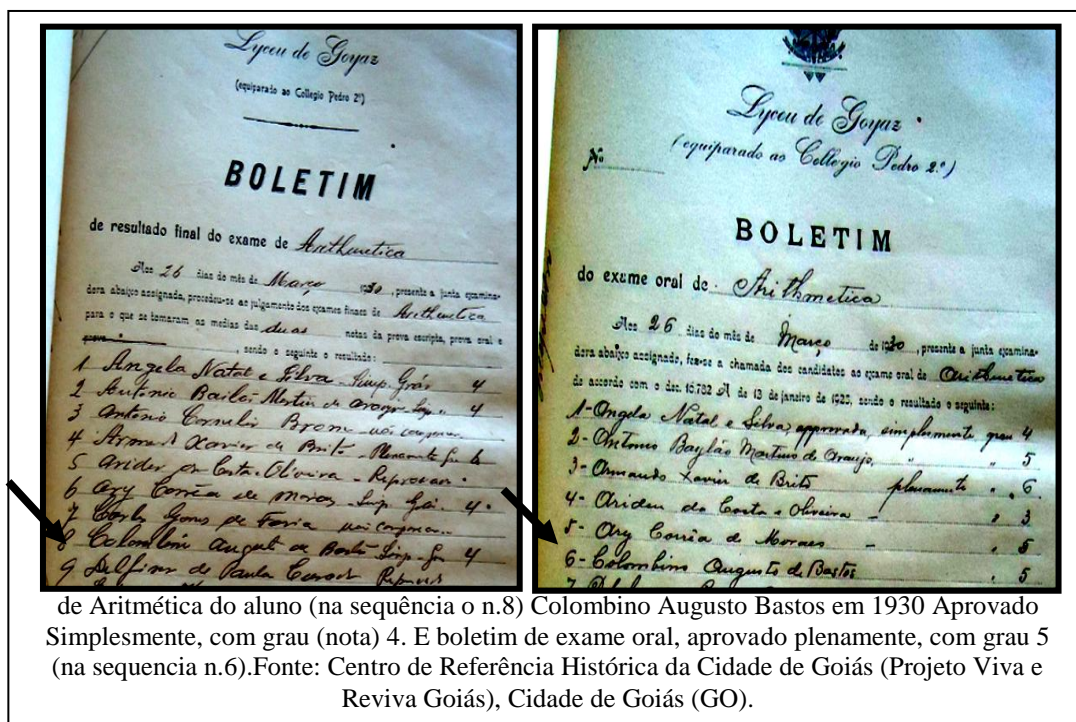 Lyceu de Goyaz
(equiparado ao Collegio Pedro 2º)
BOLETIM
de resultado final do exame de Arithmetica
Aos 26 dias do mês de Março 1930, presente a junta examina-
dora abaixo assignada, procedeu-se ao julgamento dos exames finaes de Arithmetica
para o que se tomaram as medias das duas notas da prova escripta, prova oral e
, sendo o seguinte o resultado:
1 Angela Natal e Silva - Simp. Gráo 4
2 Antonio Bailão Martins de Araujo Simp. " 4
3 Antonio Cornelio Brom - não compareceu
4 Armando Xavier de Brito - Plenamente 6
5 Arides da Costa e Oliveira - Reprovado
6 Ary Corrêa de Moraes - Simp. Gráo. 4
7 Carlos Gomes de Faria não compareceu
8 Colombino Augusto de Bastos Simp - 4
9 Delfino de Paula Reprovado
Lyceu de Goyaz
(equiparado ao Collegio Pedro 2.º)
Nº
BOLETIM
do exame oral de Arithmetica
Aos 26 dias do mês de Março de 1930, presente a junta examina-
dora abaixo assignada, fez-se a chamada dos candidatos ao exame oral de Arithmetica
de accordo com o dec. 16.782 A de 13 de janeiro de 1925, sendo o resultado o seguinte:
1- Angela Natal e Silva, approvada, simplesmente grau 4
2- Antonio Baylão Martins de Araujo, " " 5
3- Armando Xavier de Brito plenamente " 6
4- Arides da Costa e Oliveira - " 3
5- Ary Corrêa de Moraes - " 5
6- Colombino Augusto de Bastos " 5
de Aritmética do aluno (na sequência o n.8) Colombino Augusto Bastos em 1930 Aprovado
Simplesmente, com grau (nota) 4. E boletim de exame oral, aprovado plenamente, com grau 5
(na sequencia n.6).Fonte: Centro de Referência Histórica da Cidade de Goiás (Projeto Viva e
Reviva Goiás), Cidade de Goiás (GO).